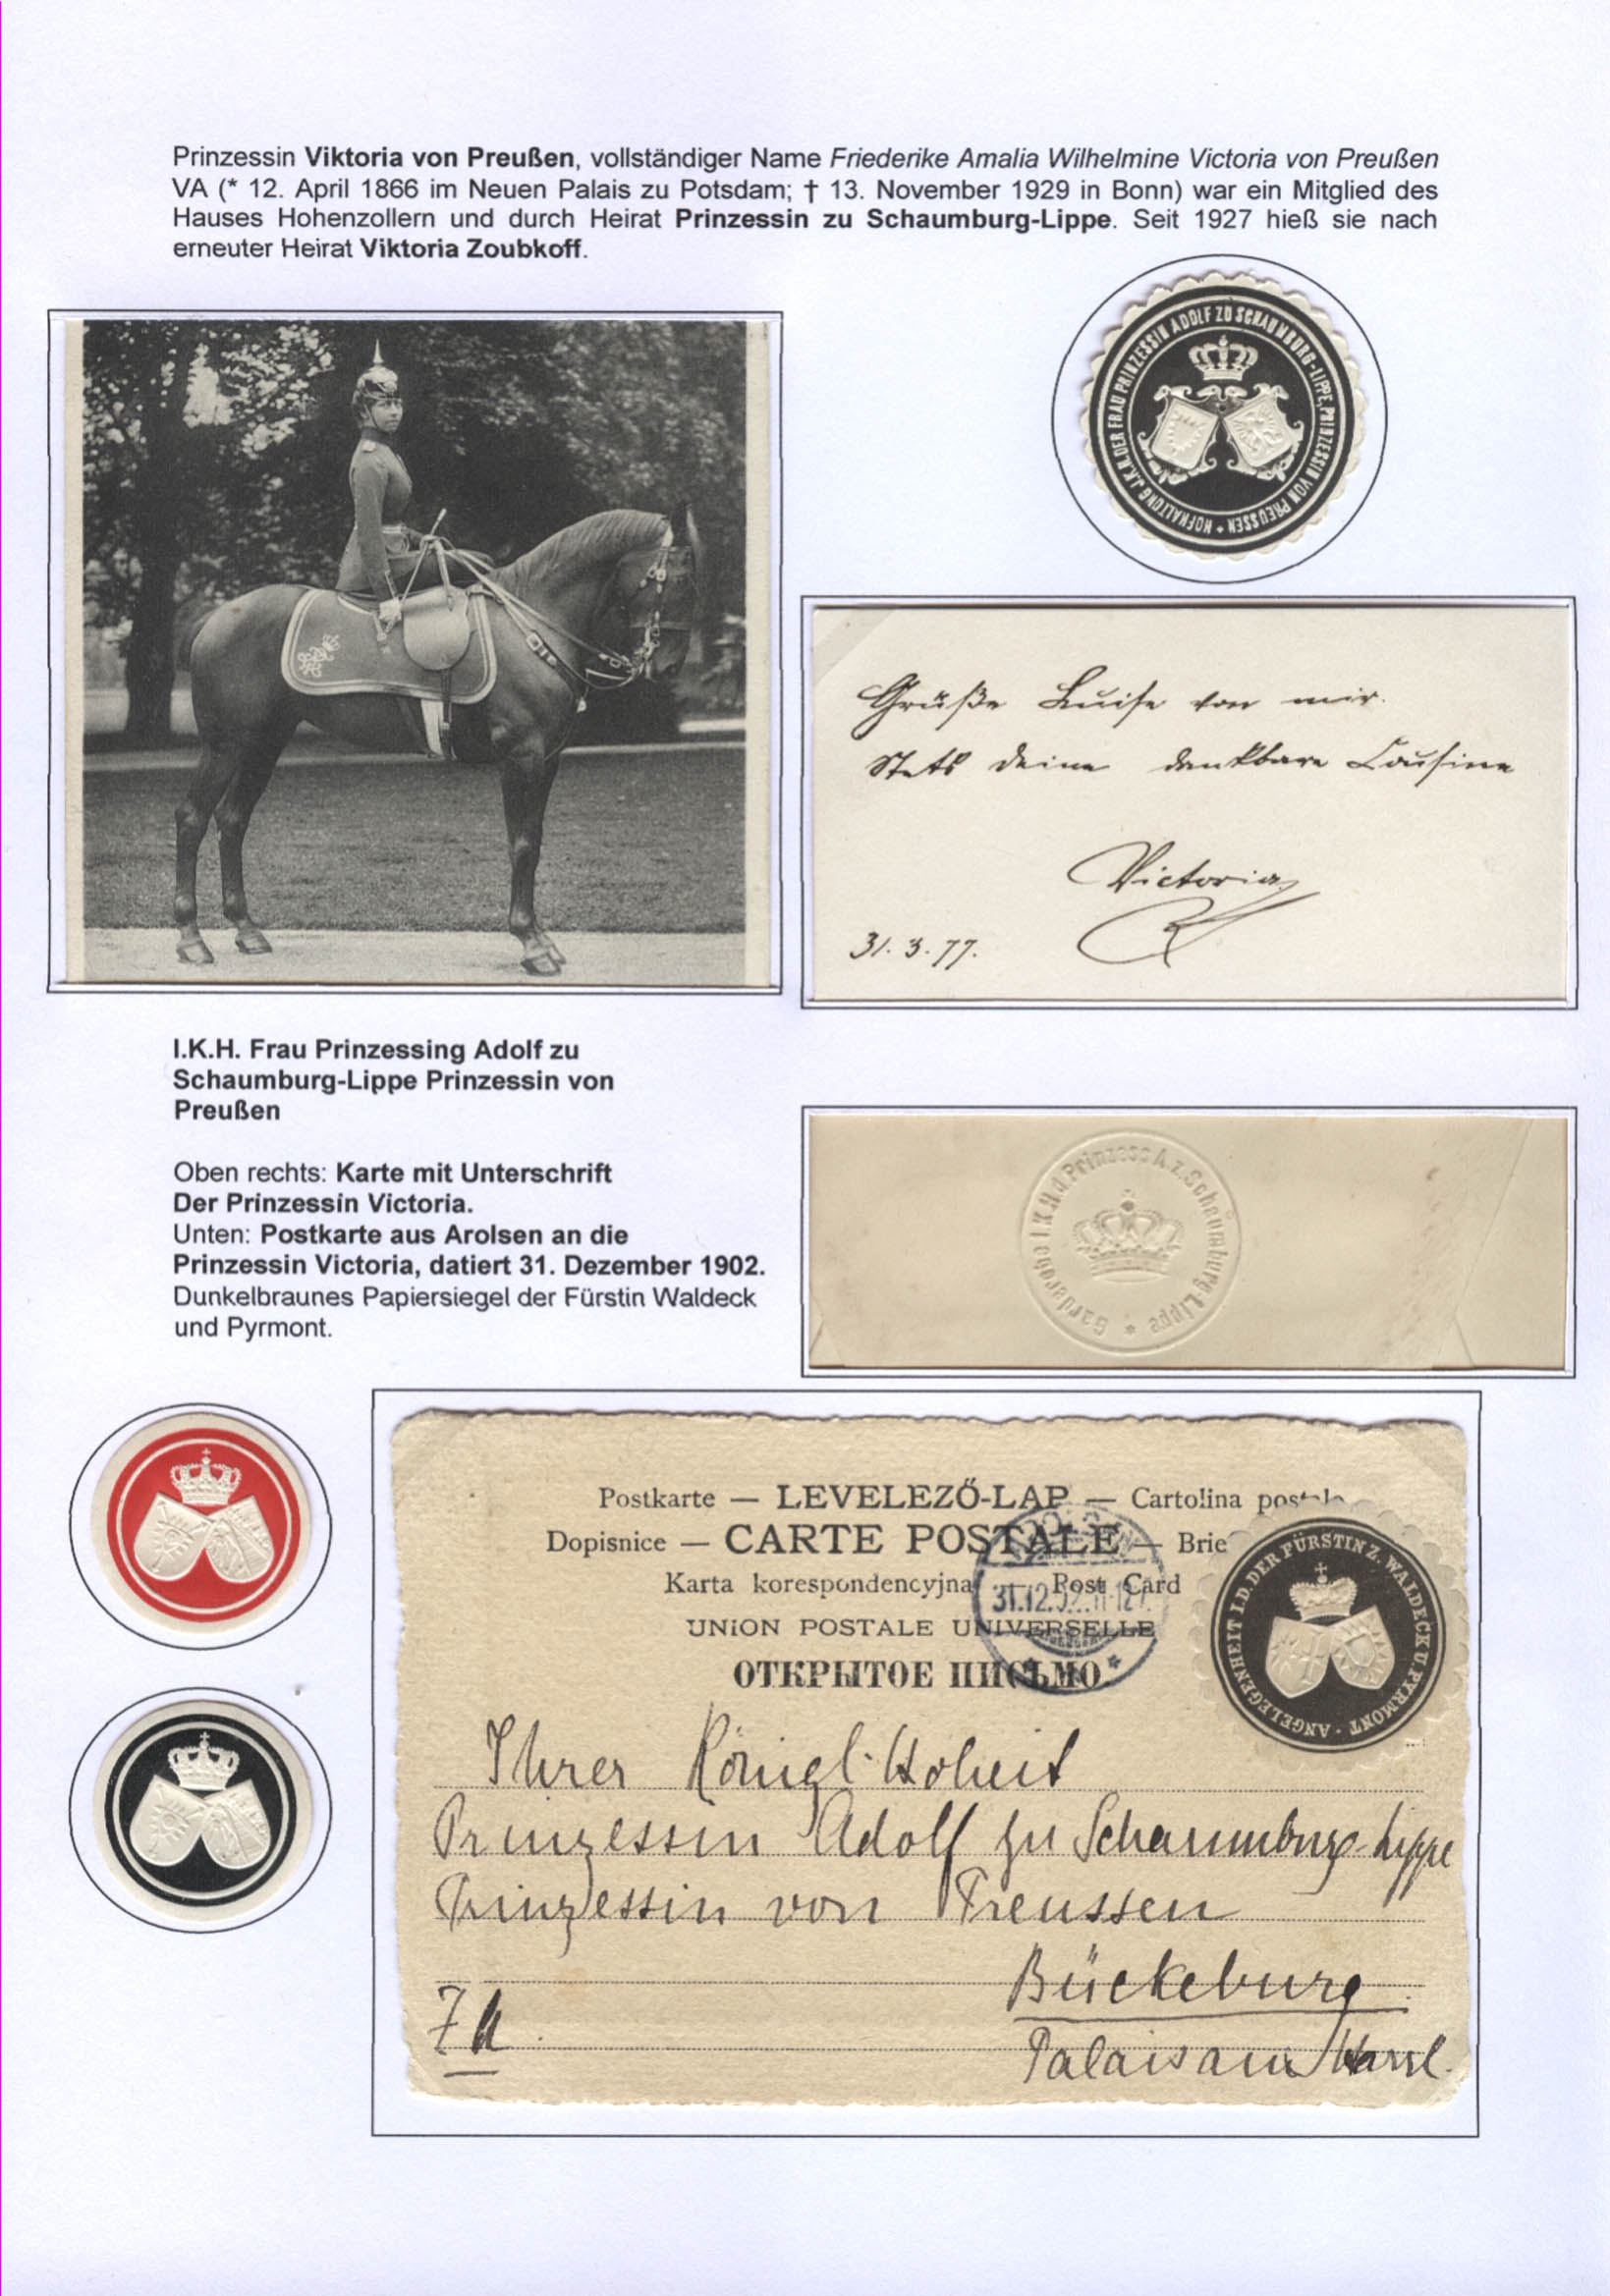 Prinzessin Viktoria von Preußen, vollständiger Name Friederike Amalia Wilhelmine Victoria von Preußen
VA (* 12. April 1866 im Neuen Palais zu Potsdam; † 13. November 1929 in Bonn) war ein Mitglied des
Hauses Hohenzollern und durch Heirat Prinzessin zu Schaumburg-Lippe. Seit 1927 hieß sie nach
erneuter Heirat Viktoria Zoubkoff.
HOFHALTUNG I.K.H. DER FRAU PRINZESSIN ADOLF ZU SCHAUMBURG-LIPPE, PRINZESSIN VON PREUSSEN *
Grüße Luise von mir.
Stets deine dankbare Cousine
Victoria
31. 3. 77.
I.K.H. Frau Prinzessing Adolf zu
Schaumburg-Lippe Prinzessin von
Preußen
Oben rechts: Karte mit Unterschrift
Der Prinzessin Victoria.
Unten: Postkarte aus Arolsen an die
Prinzessin Victoria, datiert 31. Dezember 1902.
Dunkelbraunes Papiersiegel der Fürstin Waldeck
und Pyrmont.
Garderobe I.K.H.d.Prinzess A.z.Schaumburg-Lippe *
Postkarte — LEVELEZŐ-LAP — Cartolina postale
Dopisnice — CARTE POSTALE — Brie
Karta korespondencyjna — Post Card
UNION POSTALE UNIVERSELLE
ОТКРЫТОЕ ПИСЬМО.
AROLSEN
31.12.02.11-12
ANGELEGENHEIT I.D. DER FÜRSTIN Z. WALDECK U. PYRMONT ·
Ihrer Königl. Hoheit
Prinzessin Adolf zu Schaumburg-Lippe
Prinzessin von Preussen
Bückeburg
Palais am Harrl.